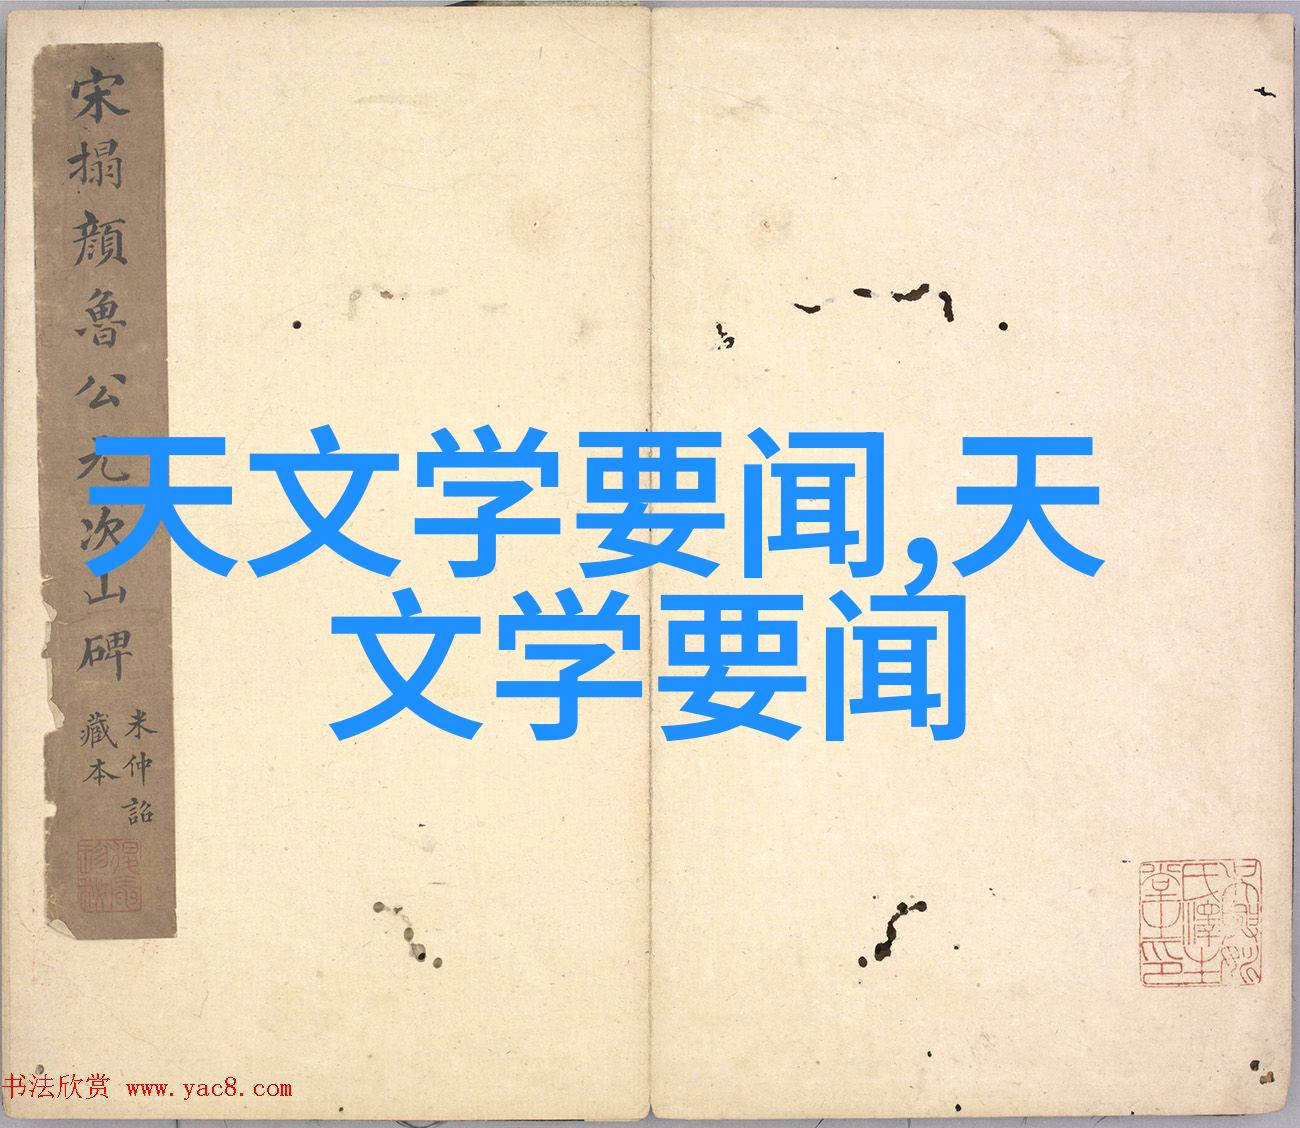 宋搨顔魯公元次山碑
米仲詔
藏本
天文学要闻,天
文学要闻
书法欣赏 www.yac8.com